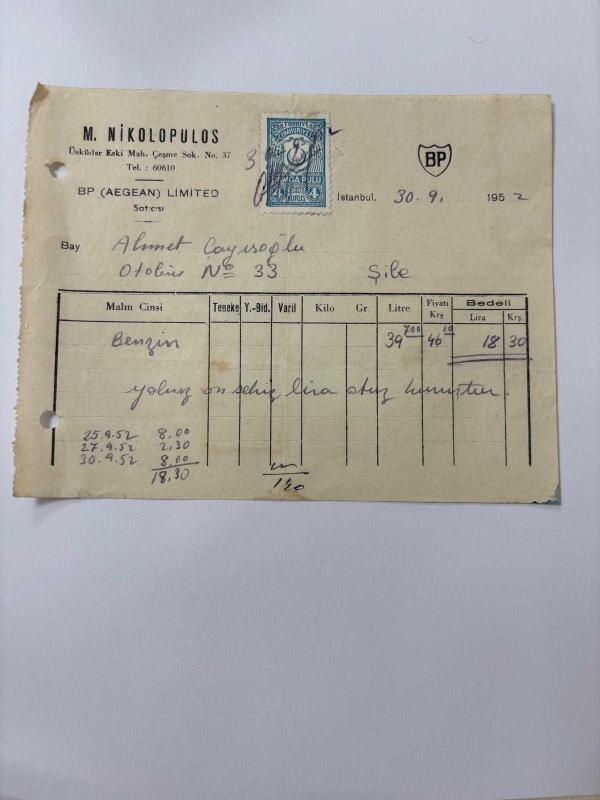 M. NİKOLOPULOS
Üsküdar Eski Mah. Çeşme Sok. No. 37
Tel. : 60610
BP (AEGEAN) LIMITED
Satıcısı
TÜRKİYE
CUMHURİYETİ
DAMGA PULU
4 4
KURUŞ
BP
İstanbul. 30.9. 1952
Bay Ahmet Çayısoğlu
Otobüs No 33 Şile
Malın Cinsi Teneke Y.-Bid. Varil Kilo Gr. Litre Fiyatı Krş Bedeli Lira Krş.
Benzin 39 700 46 10 18 30
yalnız on sekiz lira otuz kuruştur.
25.9.52 8.00
27.9.52 2.30
30.9.52 8.00
18.30
190